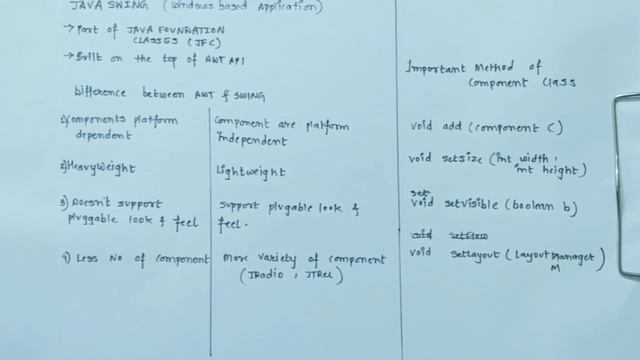 JAVA SWING (Windows based Application)
→ Part of JAVA FOUNDATION
CLASSES (JFC)
→ Built on the top of AWT API
Difference between AWT & SWING
1) Components platform
dependent
2) HeavyWeight
3) Doesn't support
pluggable look & feel
4) Less No of component
Component are platform
independent
Lightweight
Support plugable look &
feel.
More variety of component
(JRadio, JTree)
Important Method of
Component Class
void add (component C)
void setsize (int width,
int height)
set
void setvisible (boolean b)
void
void setlayout (Layout manager
M)